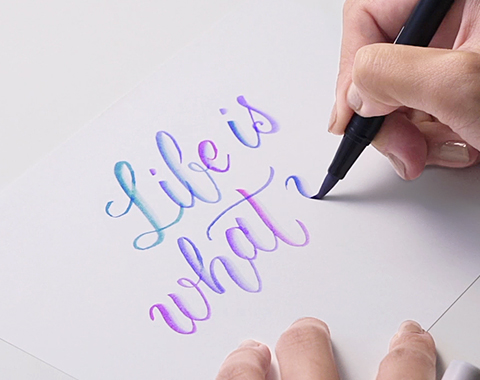 Life is
what